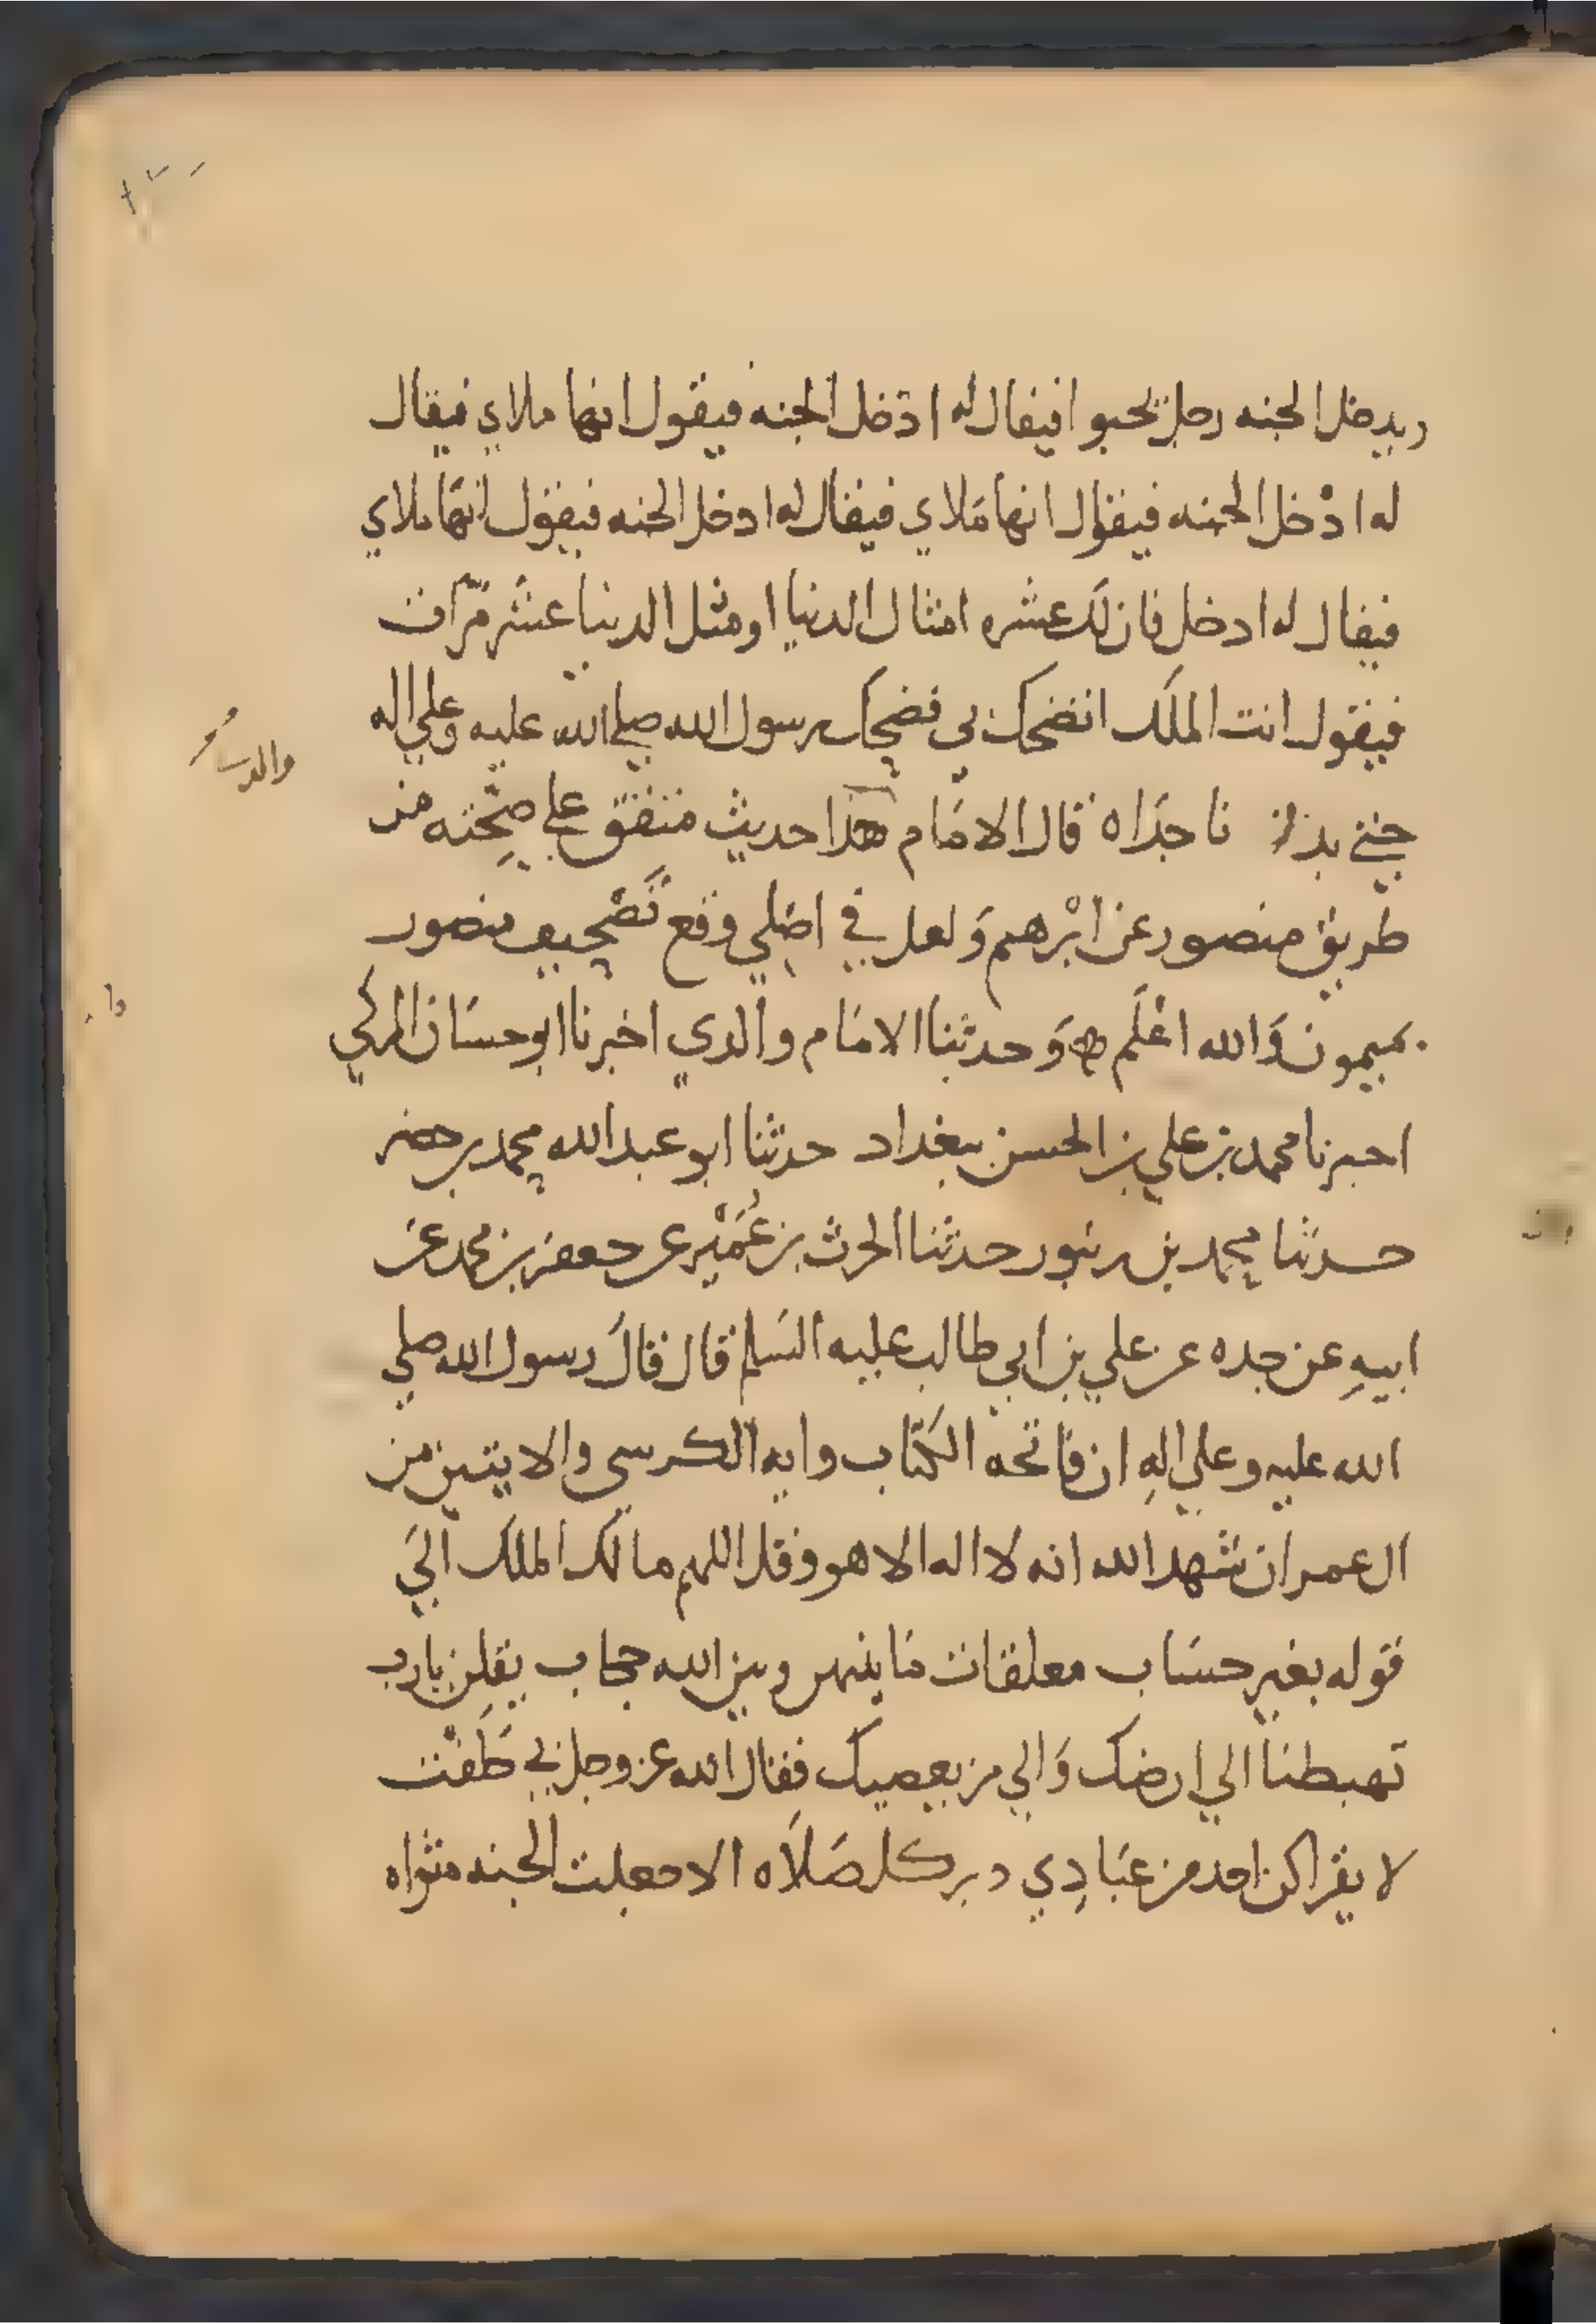 ويدخل الجنه رجل يحبوا فيقال له ادخل الجنه فيقول انها ملاي فيقال
له ادْخل الجنه فيقول انها مَلاي فيقال له ادخل الجنه فيقول انهَا ملاي
فيقال له ادخل فان لكَ عشره امثال الدنيا او مثل الدنيا عشَر مرّات
فيقول انت الملَك اتضحك بي فضحِك رسول الله صلي الله عليه وعلي اله
حتي بدت نَاجذَاه قال الامَام هذا حديث متفق علي صِحّته من
طريق منصور عن ابْرهيم وَلعل في اصْلي وقع تَصْحِيف منصور
بميمون وَالله اعْلَم وَحدثنا الامَام والدي اخبرنا ابو حسَان المزكي
اخبرنا محمد بن علي بن الحسن ببغداد حدثنا ابو عبد الله محمد بن
حدثنا محمد بن زنبور حدثنا الحرث بن عُمَيْر عن جعفر بن محمد عن
ابيهِ عن جده عن علي بن ابي طالب عليه السَلم قال قالَ رسول الله صلي
الله عليه وعلي الهِ ان فاتحه الكتَاب وايه الكرسي والايتين من
ال عمران شهد الله انه لا اله الا هو وقل اللهم مالك الملك الي
قوله بغير حسَاب معلقات مَا بينهن وبين الله حجاب يقلن يارب
تهبطنا الي ارضك وَالي من يعصيك فقال الله عز وجل بي حَلَفْت
لا يقراكن احد من عبَادِي دبر كل صَلَاه الا جعلت الجنه مثواه